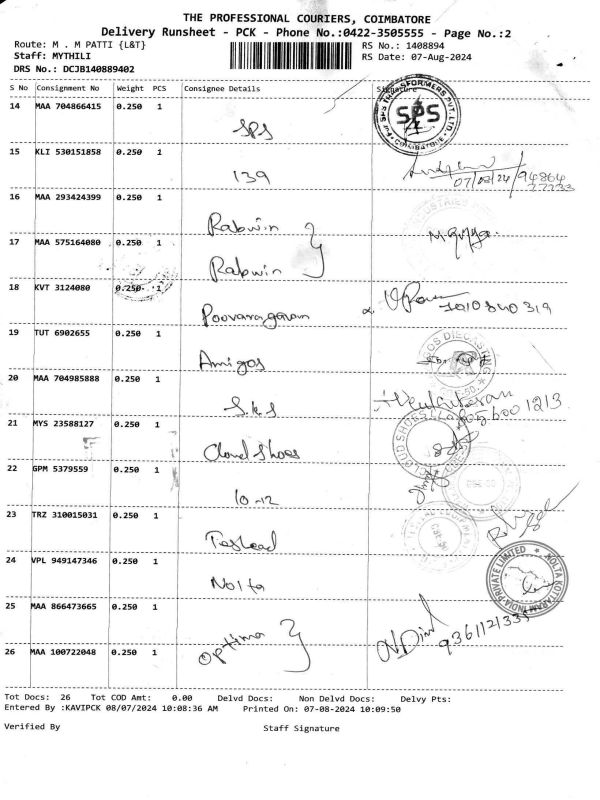 THE PROFESSIONAL COURIERS, COIMBATORE
Delivery Runsheet - PCK - Phone No.:0422-3505555 - Page No.:2
Route: M . M PATTI {L&T}
RS No.: 1408894
Staff: MYTHILI
RS Date: 07-Aug-2024
DRS No.: DCJB140889402
S No Consignment No Weight PCS Consignee Details Signature
14 MAA 704866415 0.250 1
SPS
SPS
COIMBATORE
15 KLI 530151858 0.250 1
139
07/08/24 / 94864
77333
16 MAA 293424399 0.250 1
Rabwin
17 MAA 575164080 0.250 1
Rabwin
18 KVT 3124080 0.250 1
Poovaragavan
19 TUT 6902655 1
Amigos
20 MAA 704985888 0.250 1
S.k.s
21 MYS 23588127 0.250 1
Cloud Shoes
22 GPM 5379559 0.250 1
10-12
23 TRZ 310015031 0.250 1
24 VPL 949147346 0.250 1
Nolta
NOLTA KOTTARAM INDIA PRIVATE LIMITED
25 MAA 866473665 0.250 1
optima
26 MAA 100722048 0.250 1
Tot Docs: 26 Tot COD Amt: 0.00 Delvd Docs: Non Delvd Docs: Delvy Pts:
Entered By :KAVIPCK 08/07/2024 10:08:36 AM Printed On: 07-08-2024 10:09:50
Verified By Staff Signature